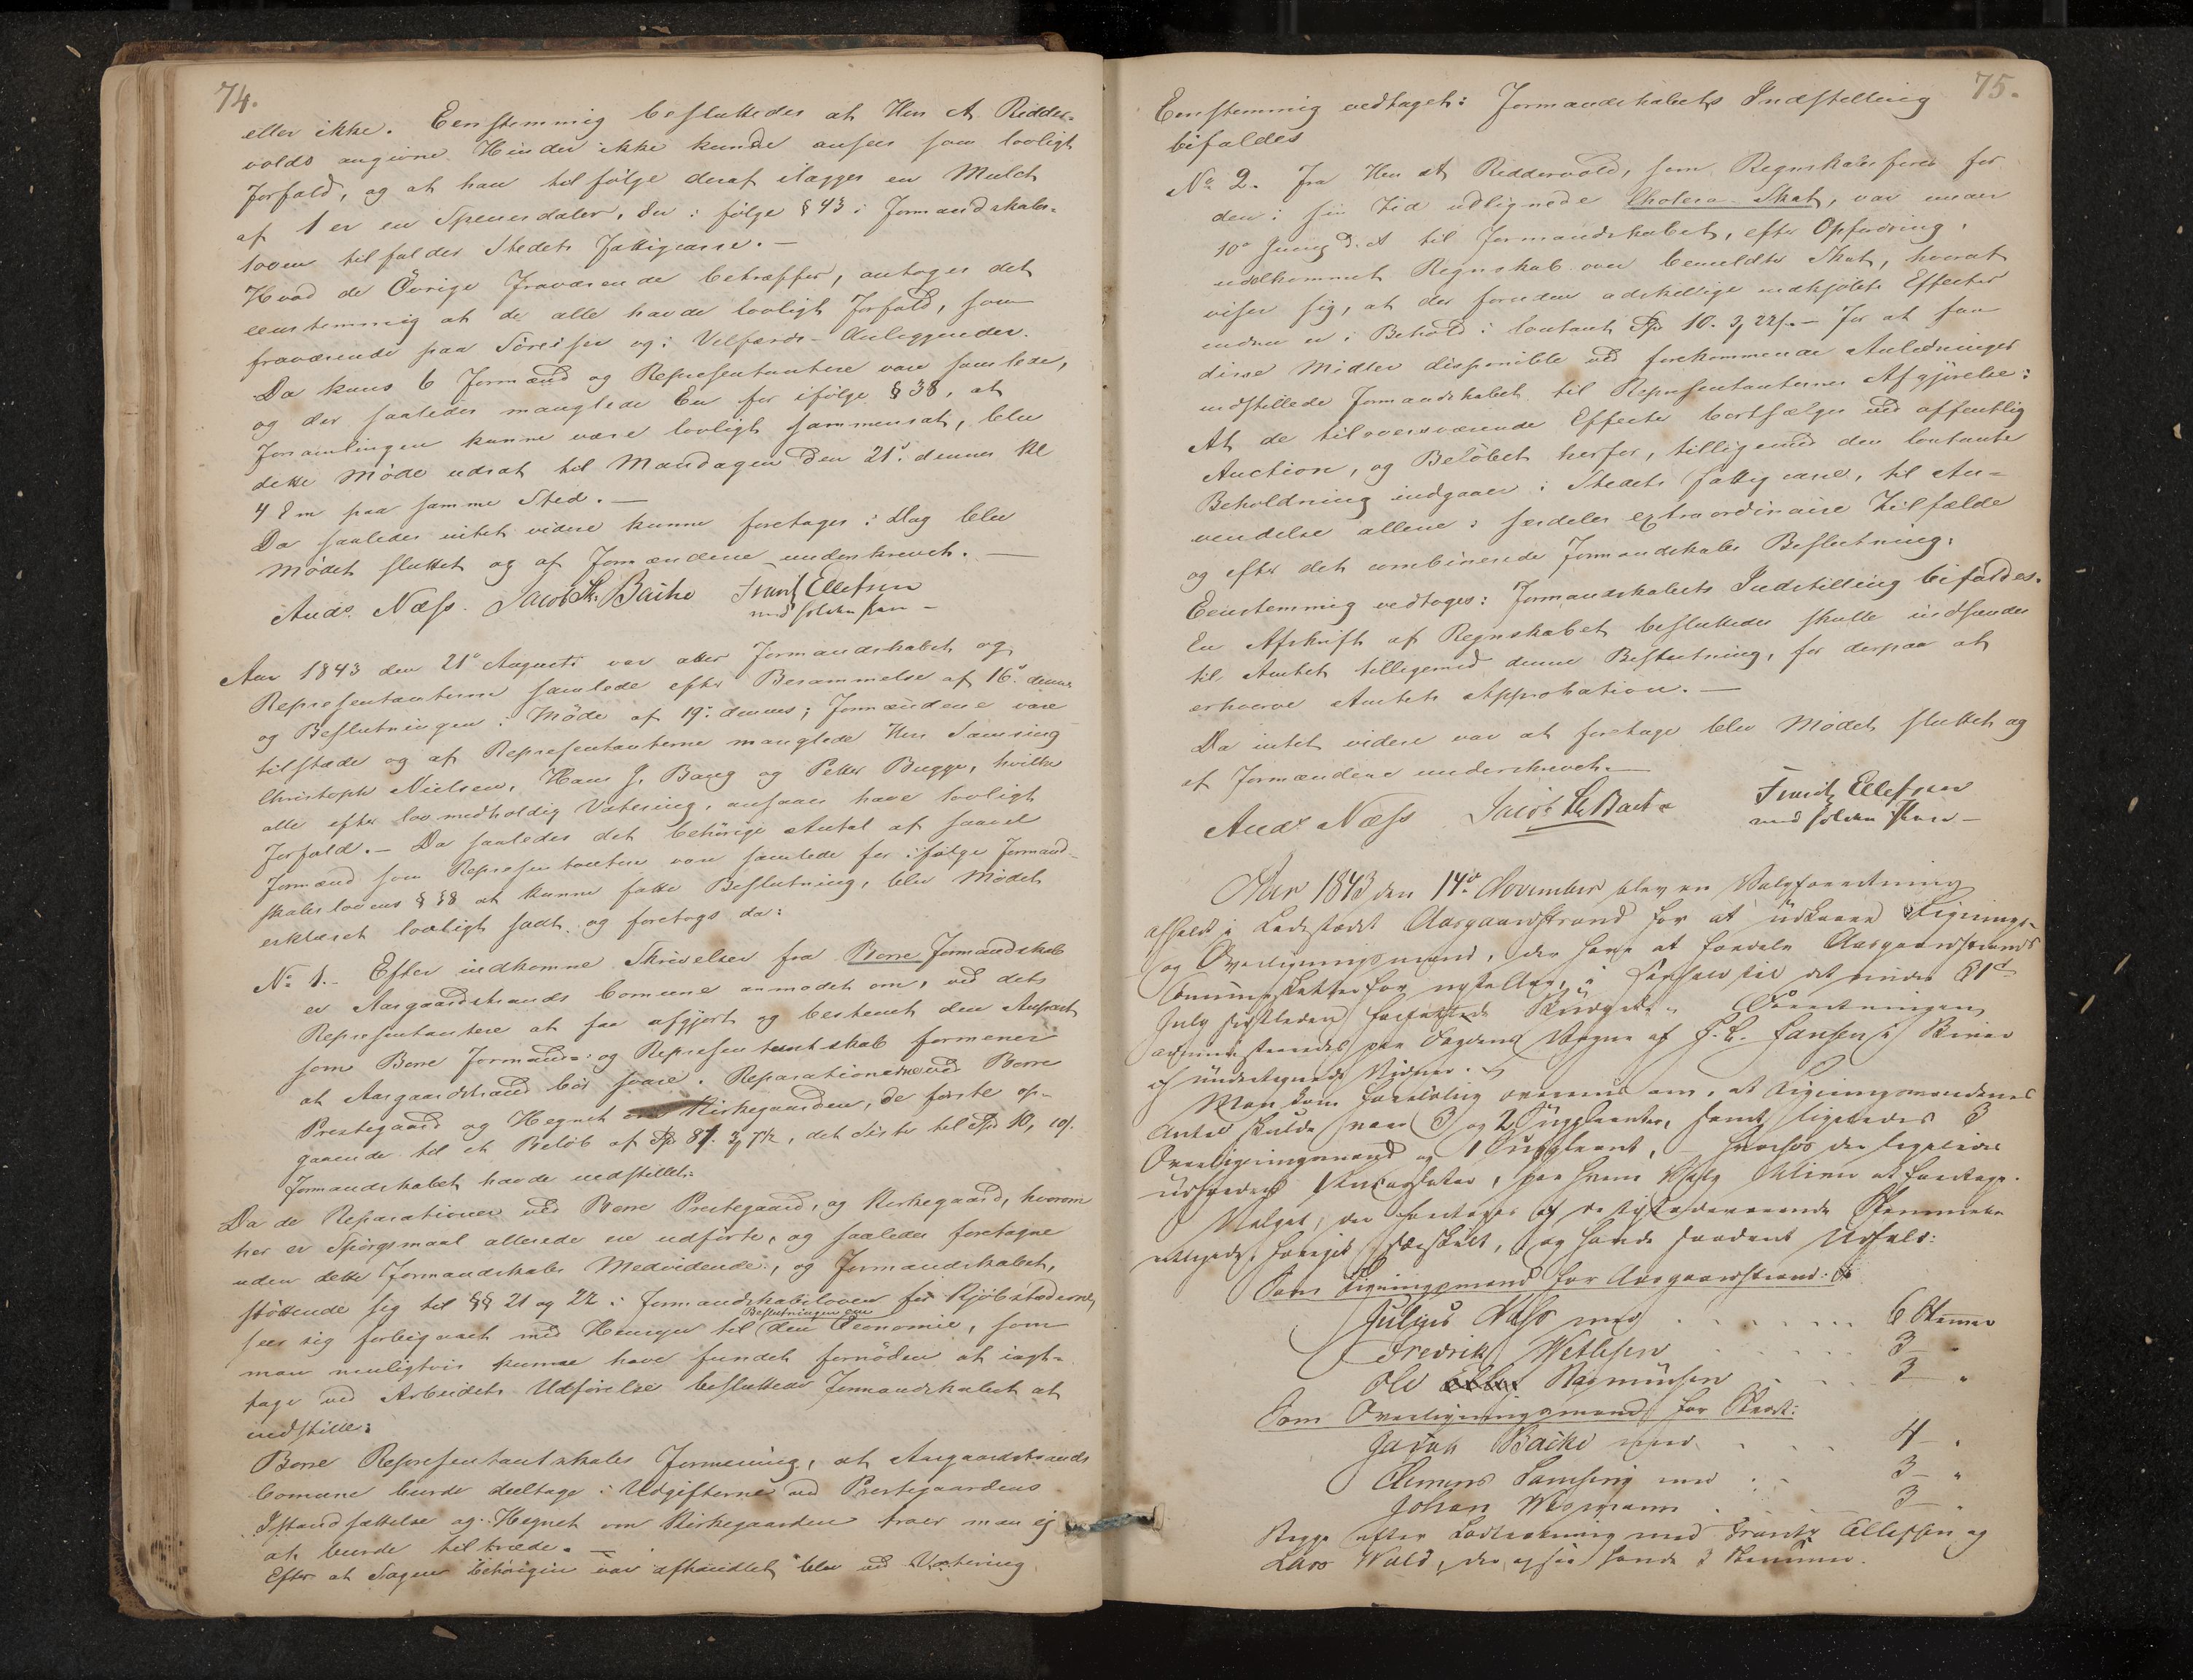 74.
eller ikke. Eenstemmig besluttedes at Herr A. Ridder-
volds angivne Hinder ikke kunde ansees som lovligt
Forfald, og at han til følge deraf ilægges en Mulct
af 1 er en Speciesdaler, der i følge § 43 i Formandskabs-
loven tilfalder Stedets Fattigcasse. —
Hvad de Övrige Fraværende betræffer, antoges det
eenstemmig at de alle havde lovligt Forfald, som
fraværende paa Söreiser og i Velfærds-Anliggender.
Da kuns 6 Formænd og Repræsentantere vare samlede,
og der saaledes manglede En for ifølge § 38, at
Forsamlingen kunne være lovligt sammensat, blev
dette Möde udsat til Mandagen den 21de dennes Kl
4 Em paa samme Sted. —
Da saaledes intet videre kunne foretages i Dag blev
Mödet sluttet og af Formændene underskrevet. —
Ands. Næss. Jacob Hr. Bache Frantz Ellefsen
med holden Pen —
Aar 1843 den 21de Augusti var atter Formandskabet og
Repræsentanterne samlede efter Berammelse af 16de dennes
og Beslutningen i Möde af 19de dennes; Formændene vare
tilstæde og af Repræsentanterne manglede Herr Samsing
Christoph Nielsen, Hans J. Bang og Petter Bugge, hvilke
alle efter lovmedholdig Votering, ansaaes have lovligt
Forfald. — Da saaledes det behörige Antal af saavel
Formænd som Repræsentantere vare samlede for ifølge Formand-
skabslovens § 38 at kunne fatte Beslutning, blev Mödet
erklæret lovligt sadt og foretogs da:
No 1. Efter indkomne Skrivelser fra Borre Formandskab
er Aasgaardstrands Comune anmodet om, ved dets
Repræsentantere at faa afgjort og bestemt den Anpart
som Borre Formands- og Repræsentantskab formener
at Aasgaardstrand bör svare i Reparationerne ved Borre
Prestegaard og Hegnet om Kirkegaarden, de förste op-
gaaende til et Belöb af Spd 87. 3 7½, det Siste til Spd 10, 10/.
Formandskabet havde indstillet:
Da de Reparationer ved Borre Prestegaard, og Kirkegaard, hvorom
her er Spörgsmaal allerede ere udförte, og saaledes foretagne
uden dette Formandskabs Medvidende, og Formandskabet,
stöttende sig til §§ 21 og 22 i Formandskabsloven for Kjöbstæderne,
seer sig forbigaaet med Hensyn til Beslutningen om den Oeconomie, som
man muligtvis kunne have fundet fornöden at iagt-
tage ved Arbeidets Udförelse besluttede Formandskabet at
indstille:
Borre Repræsentantskabs Formening, at Aasgaardstrands
Comune burde deeltage i Udgifterne ved Prestegaardens
Istandsættelse og Hegnet om Kirkegaarden troer man ej
at burde tiltræde. —
Efter at Sagen behörigen var afhandlet blev ved Votering
75.
Eenstemmig vedtaget: Formandskabets Indstilling
bifaldes
No 2. Fra Herr A Riddervold, som Regnskabsförer for
den i sin Tid udlignede Cholera-Skat, var under
10de Junij d. A til Formandskabet, efter Opfordring,
indkommet Regnskab over bemeldte Skat, hvoraf
viser sig, at der foruden adskillige indkjöbte Effecter
endnu er i Behold i contant Spd 10. 3 22 s. — For at faa
disse Midler disponible ved forekommende Anledninger
indstillede Formandskabet til Repræsentanternes Afgjörelse:
At de tiloversværende Effecte bortsælges ved offentlig
Auction, og Belöbet herfor, tilligemed den contante
Beholdning indgaaer i Stedets Fattigcasse, til An-
vendelse allene i særdeles extraordinaire Tilfælde
og efter det combinerede Formandskabs Beslutning.
Eenstemmig vedtoges: Formandskabets Indstilling bifaldes.
En Afskrift af Regnskabet besluttedes skulle indsendes
til Amtet tilligemed denne Beslutning, for derpaa at
erhverve Amtets Approbation. —
Da intet videre var at foretage blev Mödet sluttet og
af Formændene underskrevet. —
Ands Næss Jacob Hr Bache Frantz Ellefsen
med holden Pen —
Aar 1843 den 14de November blev en Valgforretning
afholdt i Ladestædet Aasgaardstrand for at udkaare Lignings-
og Overligningsmænd, der have at fordele Aasgaardstrands
Communeskatter for næste Aar, i Henhold til det under 31te
July sidstleden forfattede Budget. Forretningen
administreredes paa Fogdens Vegne af F. C. Hansen i
og undertegnede Vidner.
Man kom foreløbig overens om, at Ligningsmændenes
Antal skulde være 3 og 2 Suppleanter, samt ligeledes 3
Overligningsmænd og 1 Suppleant, hvorhos der ligeledes
Valget, der foretoges af de tilstedeværende Stemmeberettigede
særskilt, og havde saadant Udfald:
Som Ligningsmænd for Aasgaardstrand:
Julius Næss med . . . . 6 Stemmer
Fredrik Wetlesen . . . . 3 — "
Ole Rasmussen . . . 3 — "
Som Overligningsmænd for Stedet:
Jacob Bache med . . . . 4 — "
Clemens Samsing med . . 3 — "
Johan Wismann . . . 3 — "
Begge efter Lodtrækning med Frantz Ellefsen og
Lars Wold, der ogsaa havde 3 Stemmer.